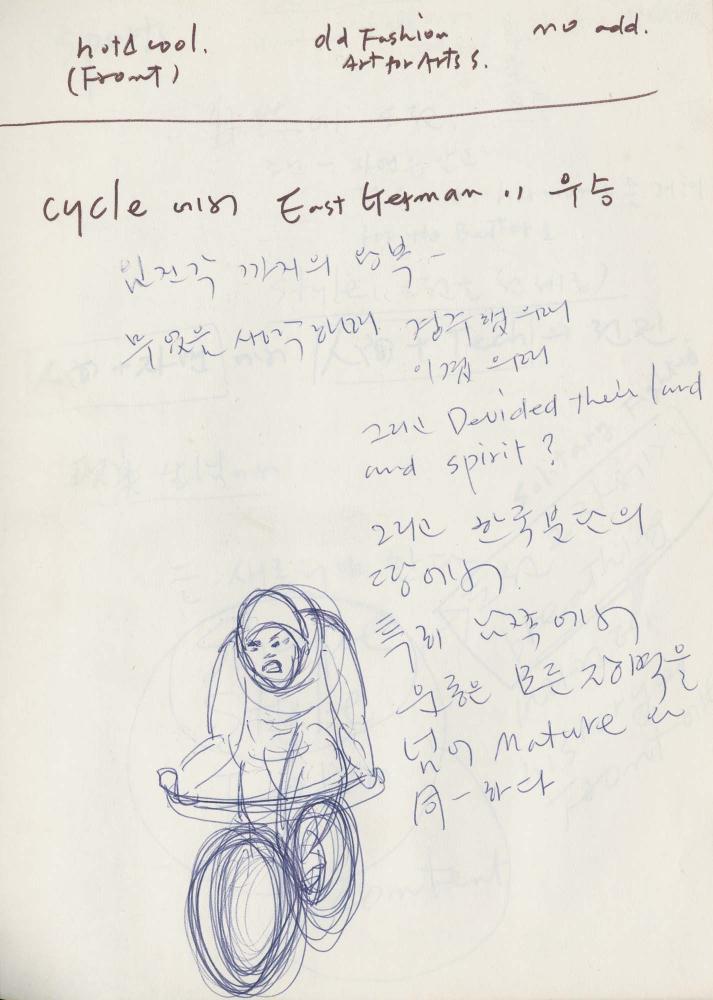 hot & cool.
(Front)
old Fashion
Art for Arts s.
no add.
cycle 에서 East German 이 우승
임진각 까지의 왕복 -
무엇을 생각하며 경주했으며
이겼으며
그리고 Devided their land
and spirit?
그리고 한국분단의
땅에서.
특히 남쪽에서
모든 장벽을
넘어 Nature
同一하다